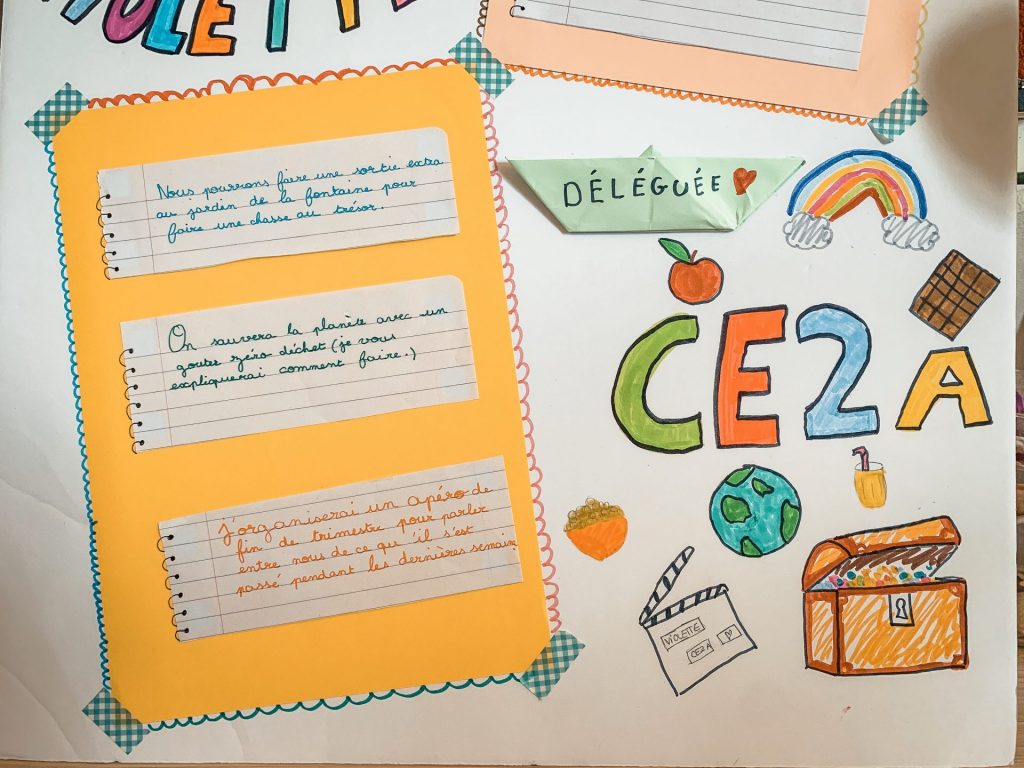 VIOLETTE
Nous pourrons faire une sortie extra
au jardin de la fontaine pour
faire une chasse au trésor.
On sauvera la planète avec un
gouter zéro déchet (je vous
expliquerai comment faire.)
J'organiserai un apéro de
fin de trimestre pour parler
entre nous de ce qu'il s'est
passé pendant les dernières semain
DÉLÉGUÉE
CE2A
VIOLETTE
CE2A